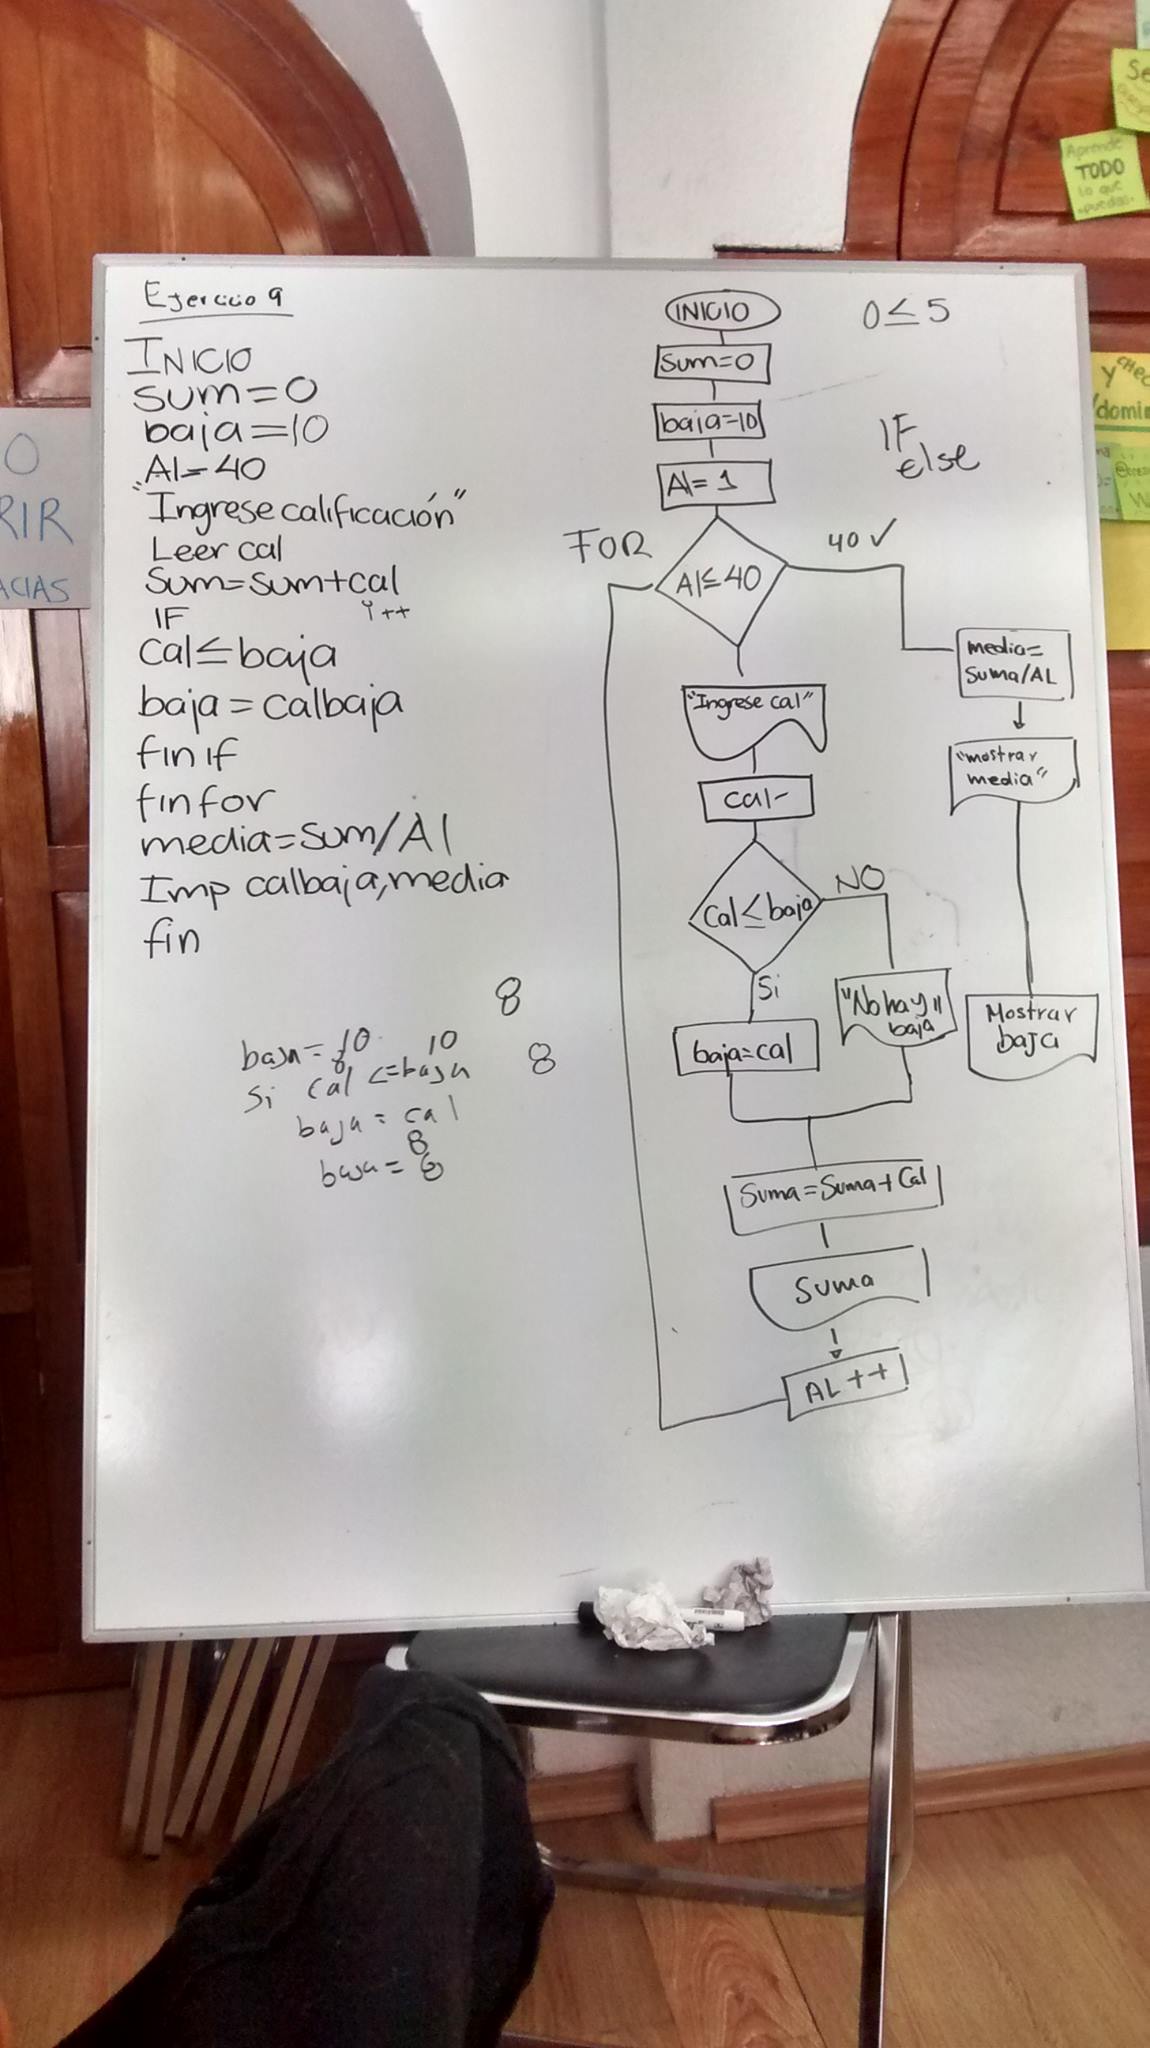 Ejercicio 9
INICIO
sum=0
baja=10
Al=40
"Ingrese calificación"
Leer cal
sum=sum+cal
IF i++
cal≤baja
baja=calbaja
fin if
fin for
media=sum/Al
Imp calbaja,media
fin
8
baja= 10
8
10
8
si cal <=baja
baja= cal
8
baja= 8
INICIO
sum=0
baja=10
Al=1
FOR
Al≤40
40✓
"Ingrese cal"
cal-
Cal≤baja
NO
Si
baja=cal
"No hay"
baja
Suma=Suma+Cal
Suma
AL++
media=
Suma/AL
"mostrar
media"
Mostrar
baja
0≤5
IF
else
O
RIR
ACIAS
Se
Aprende
TODO
lo que
puedas
y CHEC
/domin